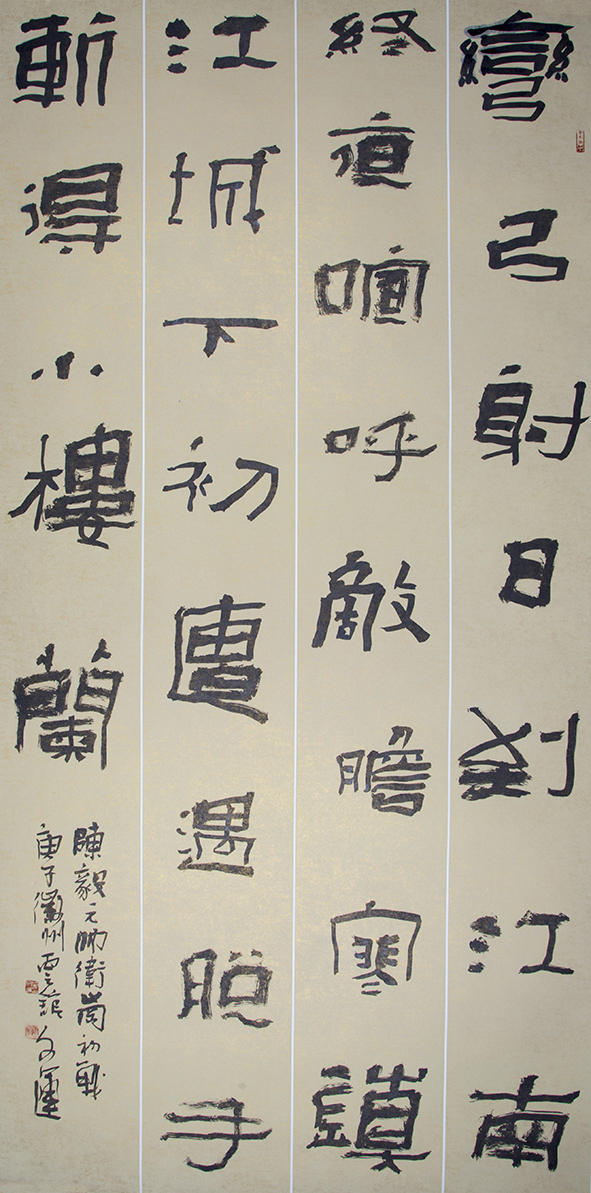 彎弓射日到江南
終夜喧呼敵膽寒鎮
江城下初遭遇脫手
斬得小樓蘭
陳毅元帥衛崗初戰
庚子徽州文運